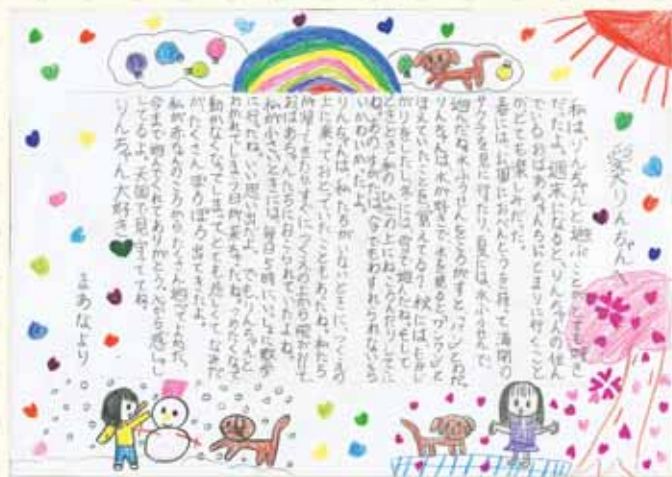 愛犬りんちゃんへ
私はりんちゃんと遊ぶことがとても好き
だったよ。週末になると、りんちゃんの住ん
でいるおばあちゃんちにとまりに行くこと
がとても楽しみだった。
春には、公園におべんとうを持って満開の
サクラを見に行ったり、夏には、水小ぶせんで
遊んだね。水ふうせんをころがすと、パンとわれ
りんちゃんは水が好きで水を見ると、ワンワンと
ほえていたことを覚えてる？秋には、
がりをしたし、冬には、雪で遊んだね。そして
ときどき私のひざの上にねころんだりして
ね。あのすがたは、今でもわすれられないくら
いかわいかったよ。
りんちゃんは、私たちがいないときに、つくえの
上に乗っておこっていたこともあったね。私たち
が帰ってきたらすぐにつくえの上から飛びおりて
おばあちゃんたちにおこられていたよね。
私が小さいときには、毎日夕時にいっしょに散歩
に行ったね。いい思い出だよ。でもりんちゃんと
おわかれしてしまう日が来たね。つめたくなって
動かなくなってしまってとても悲しくてなみだ
がたくさんぽろぽろ出てきたよ。
私が赤ちゃんのころからたくさん遊んでくれた。
今まで遊んでくれてありがとう。心から感しゃ
してるよ。天国で見守っててね。
りんちゃん大好き
まあなより